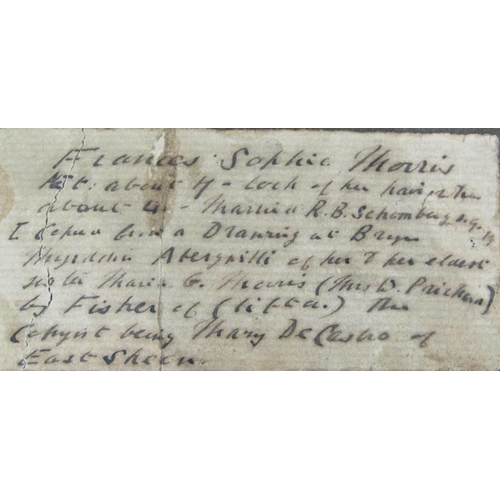 Frances Sophia Morris
Æt: about 7 - Lock of her hair when
about 4 - Married R.B. Schomberg Esq.
I Copied from a Drawing at Bryn
Myrddin Abergwilli of her & her eldest
sister Maria C. Morris (Mrs D. Prichard)
by Fisher of (ditto.) The
Copyist being Mary De Castro of
East Sheen.